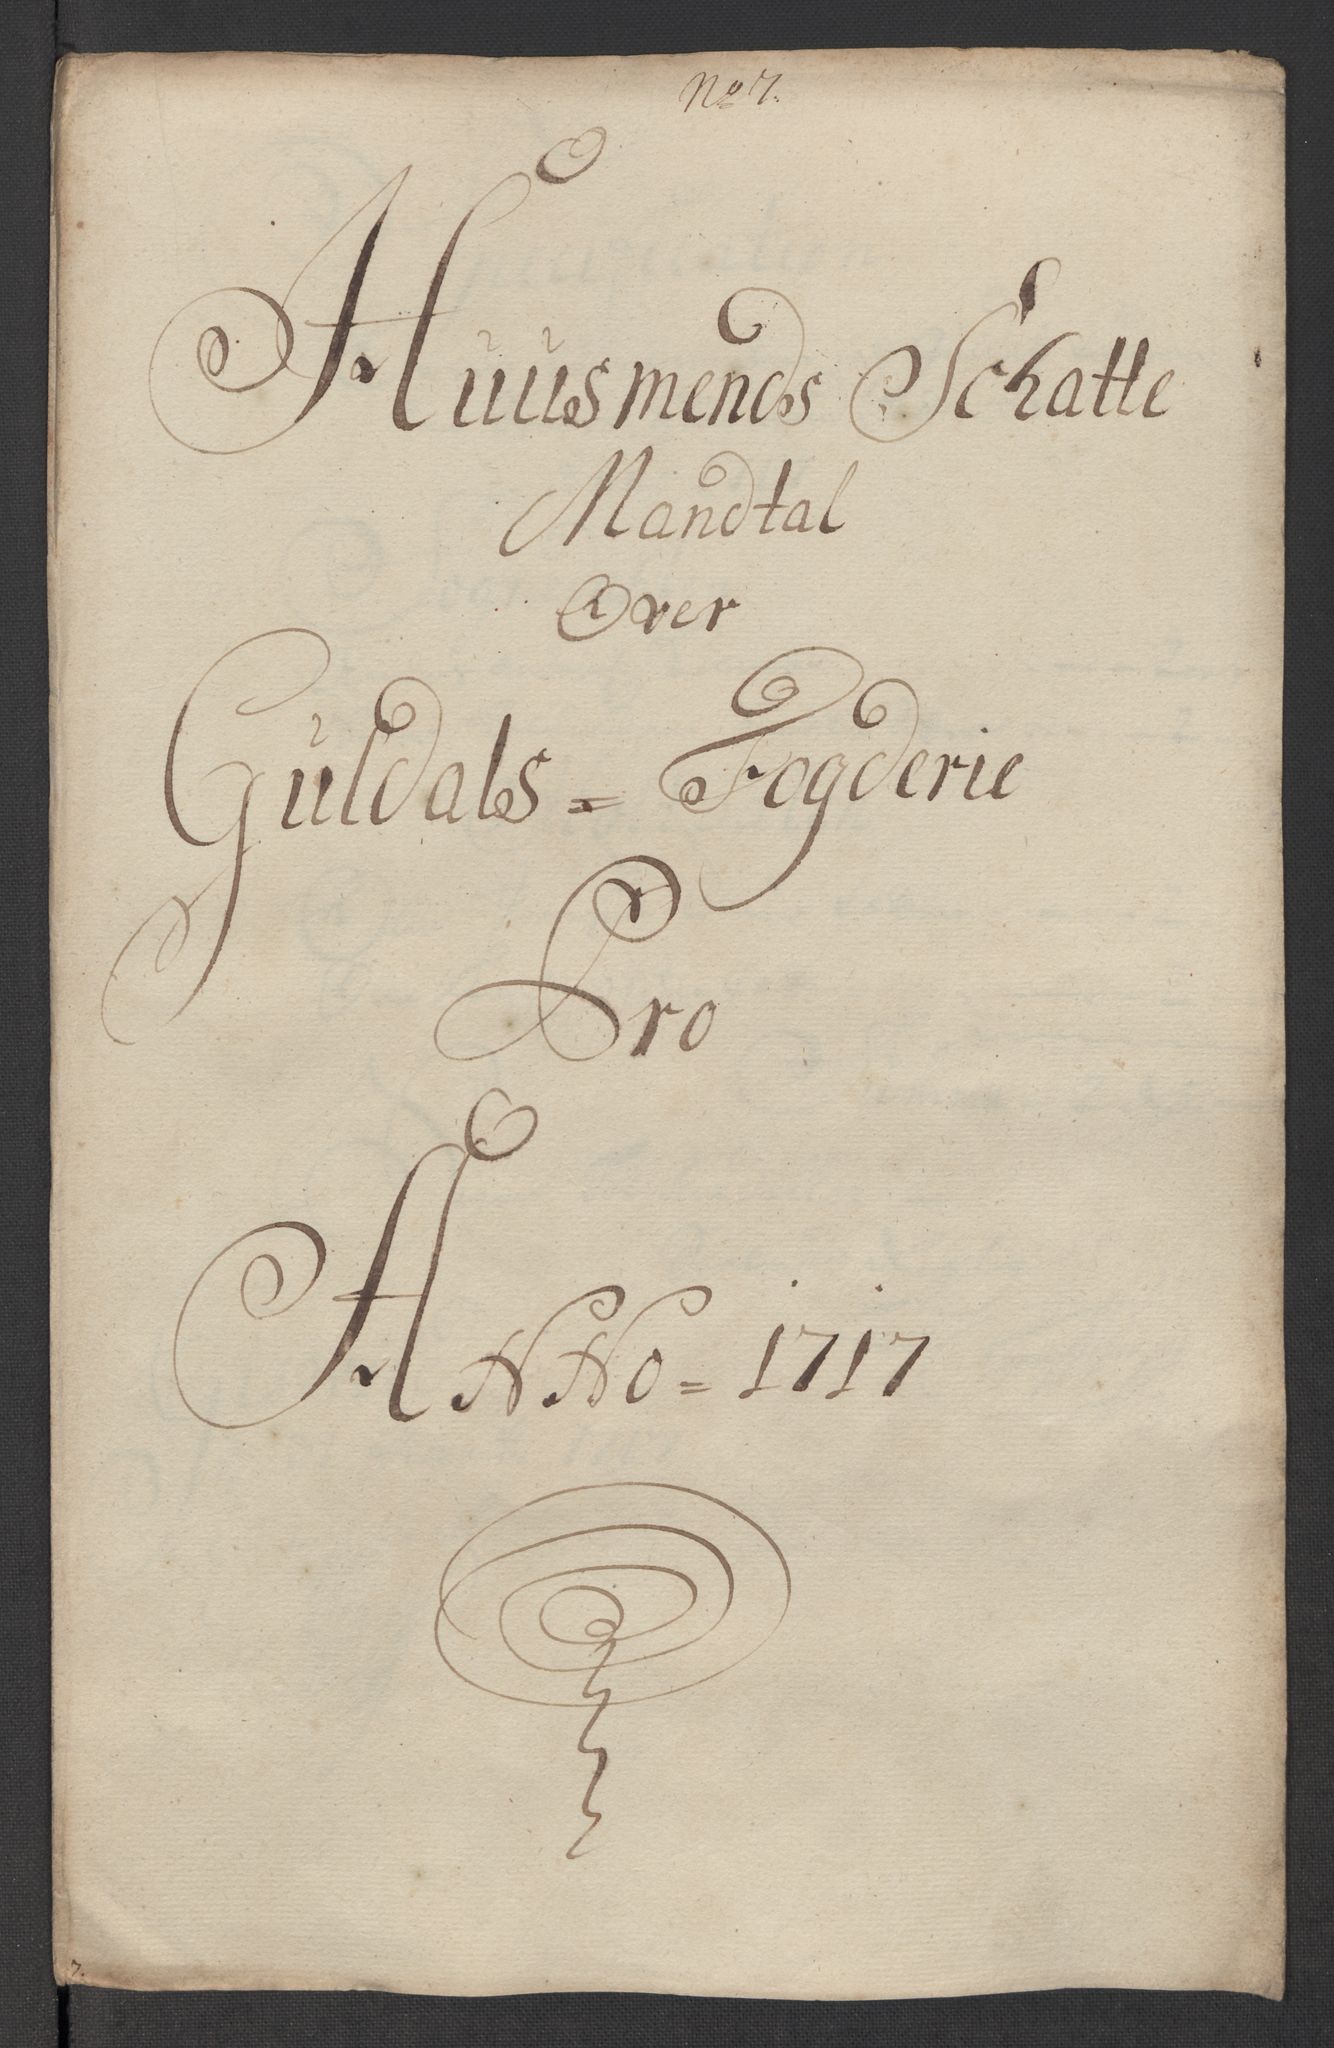 No 7.
Huusmends Schatte
Mandtal
Over
Guldals = Fogderie
Pro
ANNo = 1717
7.